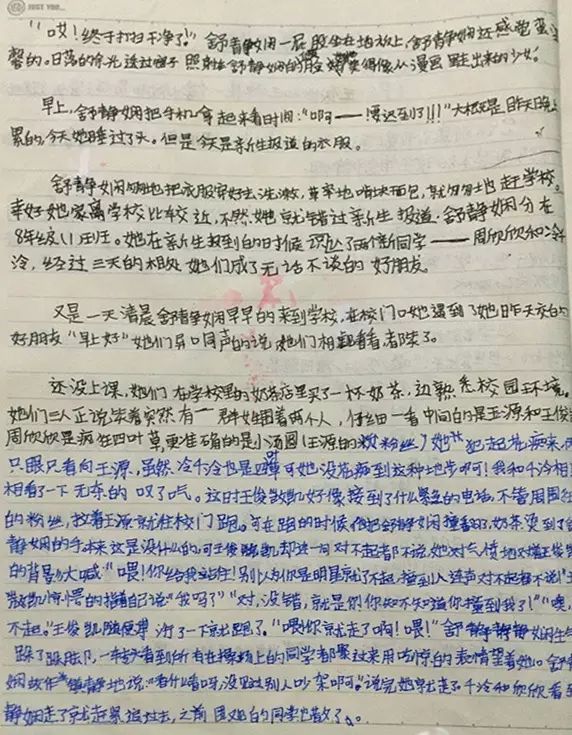 JUST YOU...
"哎！终于打扫干净了！"舒静娴一屁股坐在地板上，舒静娴还感觉蛮
馨的。日落的余光透过帽子照射在舒静娴的脸她美得像从漫画里走出来的少女。
早上，舒静娴把手机拿起来看时间："啊——！要迟到了!!!"大概是昨天晚上
累的，今天她睡过了头。但是今天是新生报道的衣服。
舒静娴匆匆地把衣服穿好去洗漱，草率地啃块面包，就匆匆地赶学校。
幸好她家离学校比较近，不然她就错过新生报道。舒静娴分在
8年级(1)班。她在新生报到的时候认识了两个新同学——周欣欣和冷千
冷，经过三天的相处她们成了无话不谈的好朋友。
又是一天清晨舒静娴早早的来到学校，在校门口她遇到了她昨天交的
好朋友"早上好"她们异口同声的说，她们相视看看，都笑了。
还没上课，她们在学校里的奶茶店里买了一杯奶茶，边熟悉校园环境。
她们三人正说笑着突然有一群女生围着两个人，仔细一看中间的是王源和王俊
周欣欣是疯狂四叶草更准确的是小汤圆(王源的粉丝)她犯起花痴来，两
只眼只看向王源，虽然冷千冷也是四叶草可她没花痴到这种地步啊！我和千冷相
相看了一下无奈的叹了气。这时王俊凯好像接到了什么紧急的电话，不管周围
的粉丝，拉着王源就往校门跑。可在跑的时候他把舒静娴撞到了，奶茶烫到了舒
静娴的手，本来这是没什么的，可王俊凯却连一句对不起都不说，她对气愤地对王俊凯
的背影大喊"喂！你给我站住！别以为你是明星就了不起，撞到人连声对不起都不说"王
俊凯惊慌的指着自己说"我吗？""对，没错，就是你！你知不知道你撞到我了！""噢，
不起。"王俊凯随便说了一下就跑了。"喂你就走了啊！喂！"舒静娴生气
跺了跺脚，一转头看到所有在操场上的同学都聚过来用吃惊的表情望着她。舒静
娴故作镇静地说："看什么看呀，没见过别人吵架啊。"说完她就走了。千冷和欣欣看到
静娴走了就赶紧追过去，之前围观的同学也散了。